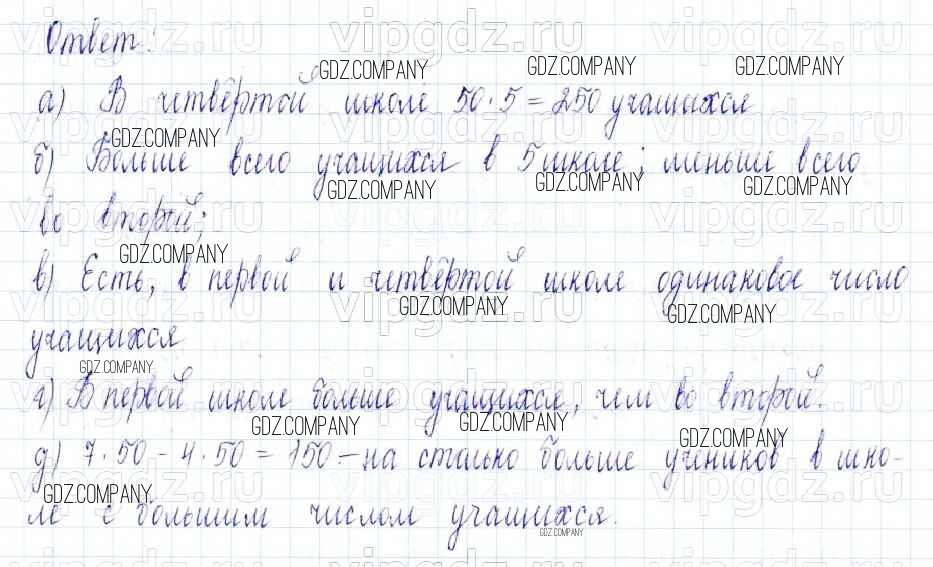 Ответ:
а) В четвёртой школе 50·5=250 учащихся
б) Больше всего учащихся в 5 школе; меньше всего
во второй;
в) Есть, в первой и четвёртой школе одинаковое число
учащихся
г) В первой школе больше учащихся, чем во второй.
д) 7·50-4·50=150 - на столько больше учеников в шко-
ле с большим числом учащихся.
vipgdz.ru
GDZ.COMPANY